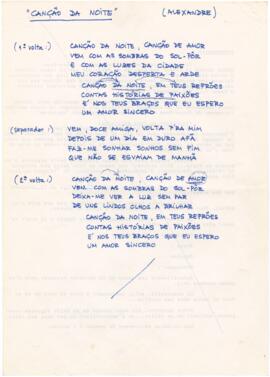 "CANÇÃO DA NOITE" (ALEXANDRE)
(1ª volta:) CANÇÃO DA NOITE, CANÇÃO DE AMOR
VEM COM AS SOMBRAS DO SOL-PÔR
E COM AS LUZES DA CIDADE
MEU CORAÇÃO DESPERTA E ARDE
CANÇÃO DA NOITE, EM TEUS REFRÕES
CONTAS HISTÓRIAS DE PAIXÕES
E NOS TEUS BRAÇOS QUE EU ESPERO
UM AMOR SINCERO
(separador:) VEM, DOCE AMIGA, VOLTA P'RA MIM
DEPOIS DE UM DIA EM DURO AFÃ
FAZ-ME SONHAR SONHOS SEM FIM
QUE NÃO SE ESVAIAM DE MANHÃ
(2ª volta:) CANÇÃO DA NOITE, CANÇÃO DE AMOR
VEM COM AS SOMBRAS DO SOL-PÔR
DEIXA-ME VER A LUZ SEM PAR
DE UNS LINDOS OLHOS A BRILHAR
CANÇÃO DA NOITE, EM TEUS REFRÕES
CONTAS HISTÓRIAS DE PAIXÕES
E NOS TEUS BRAÇOS QUE EU ESPERO
UM AMOR SINCERO